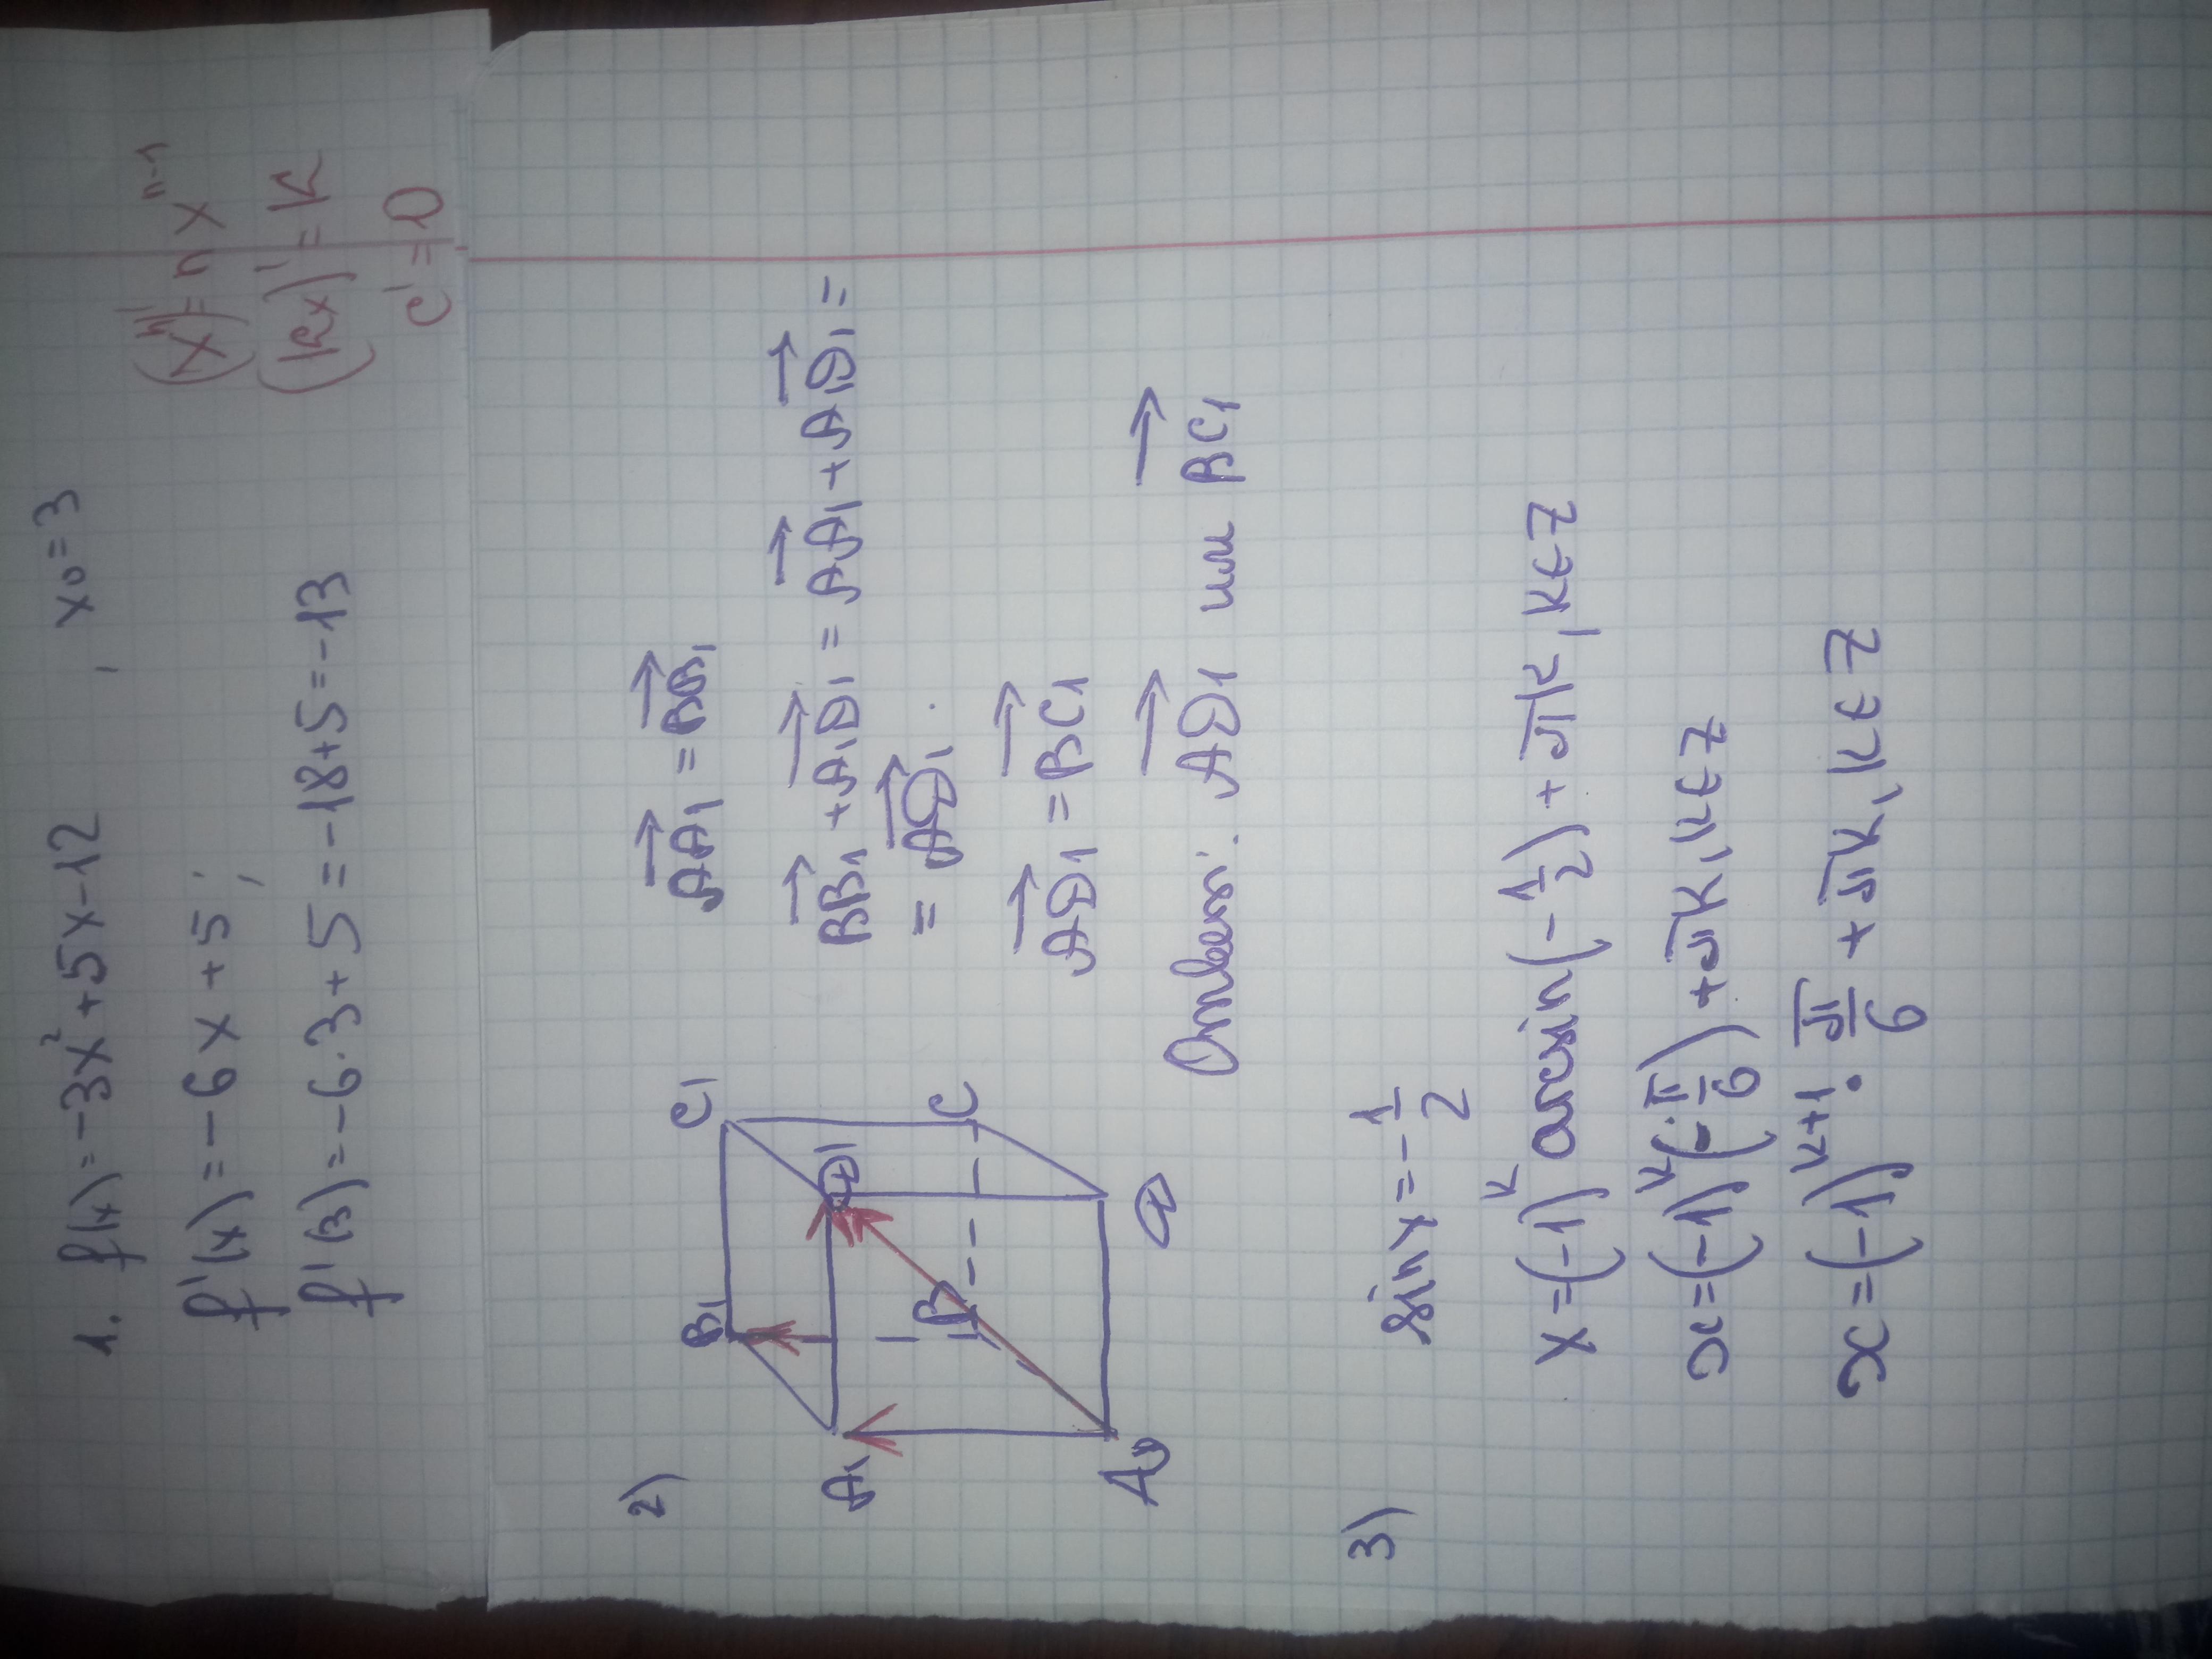 1. f(x)=-3x²+5x-12 , x₀=3
f'(x)=-6x+5;
(xⁿ)'=nxⁿ⁻¹
f'(3)=-6·3+5=-18+5=-13
(kx)'=k
c'=0
2)
B₁ C₁
A₁ D₁
B C
A D
AA₁=BB₁
BB₁+A₁D₁=AA₁+A₁D₁=
=AD₁.
AD₁=BC₁
Ответ: AD₁ или BC₁
3) sinx=-1/2
x=(-1)ᵏ arcsin(-1/2)+πk, k∈Z
x=(-1)ᵏ(-π/6)+πk, k∈Z
x=(-1)ᵏ⁺¹·π/6+πk, k∈Z